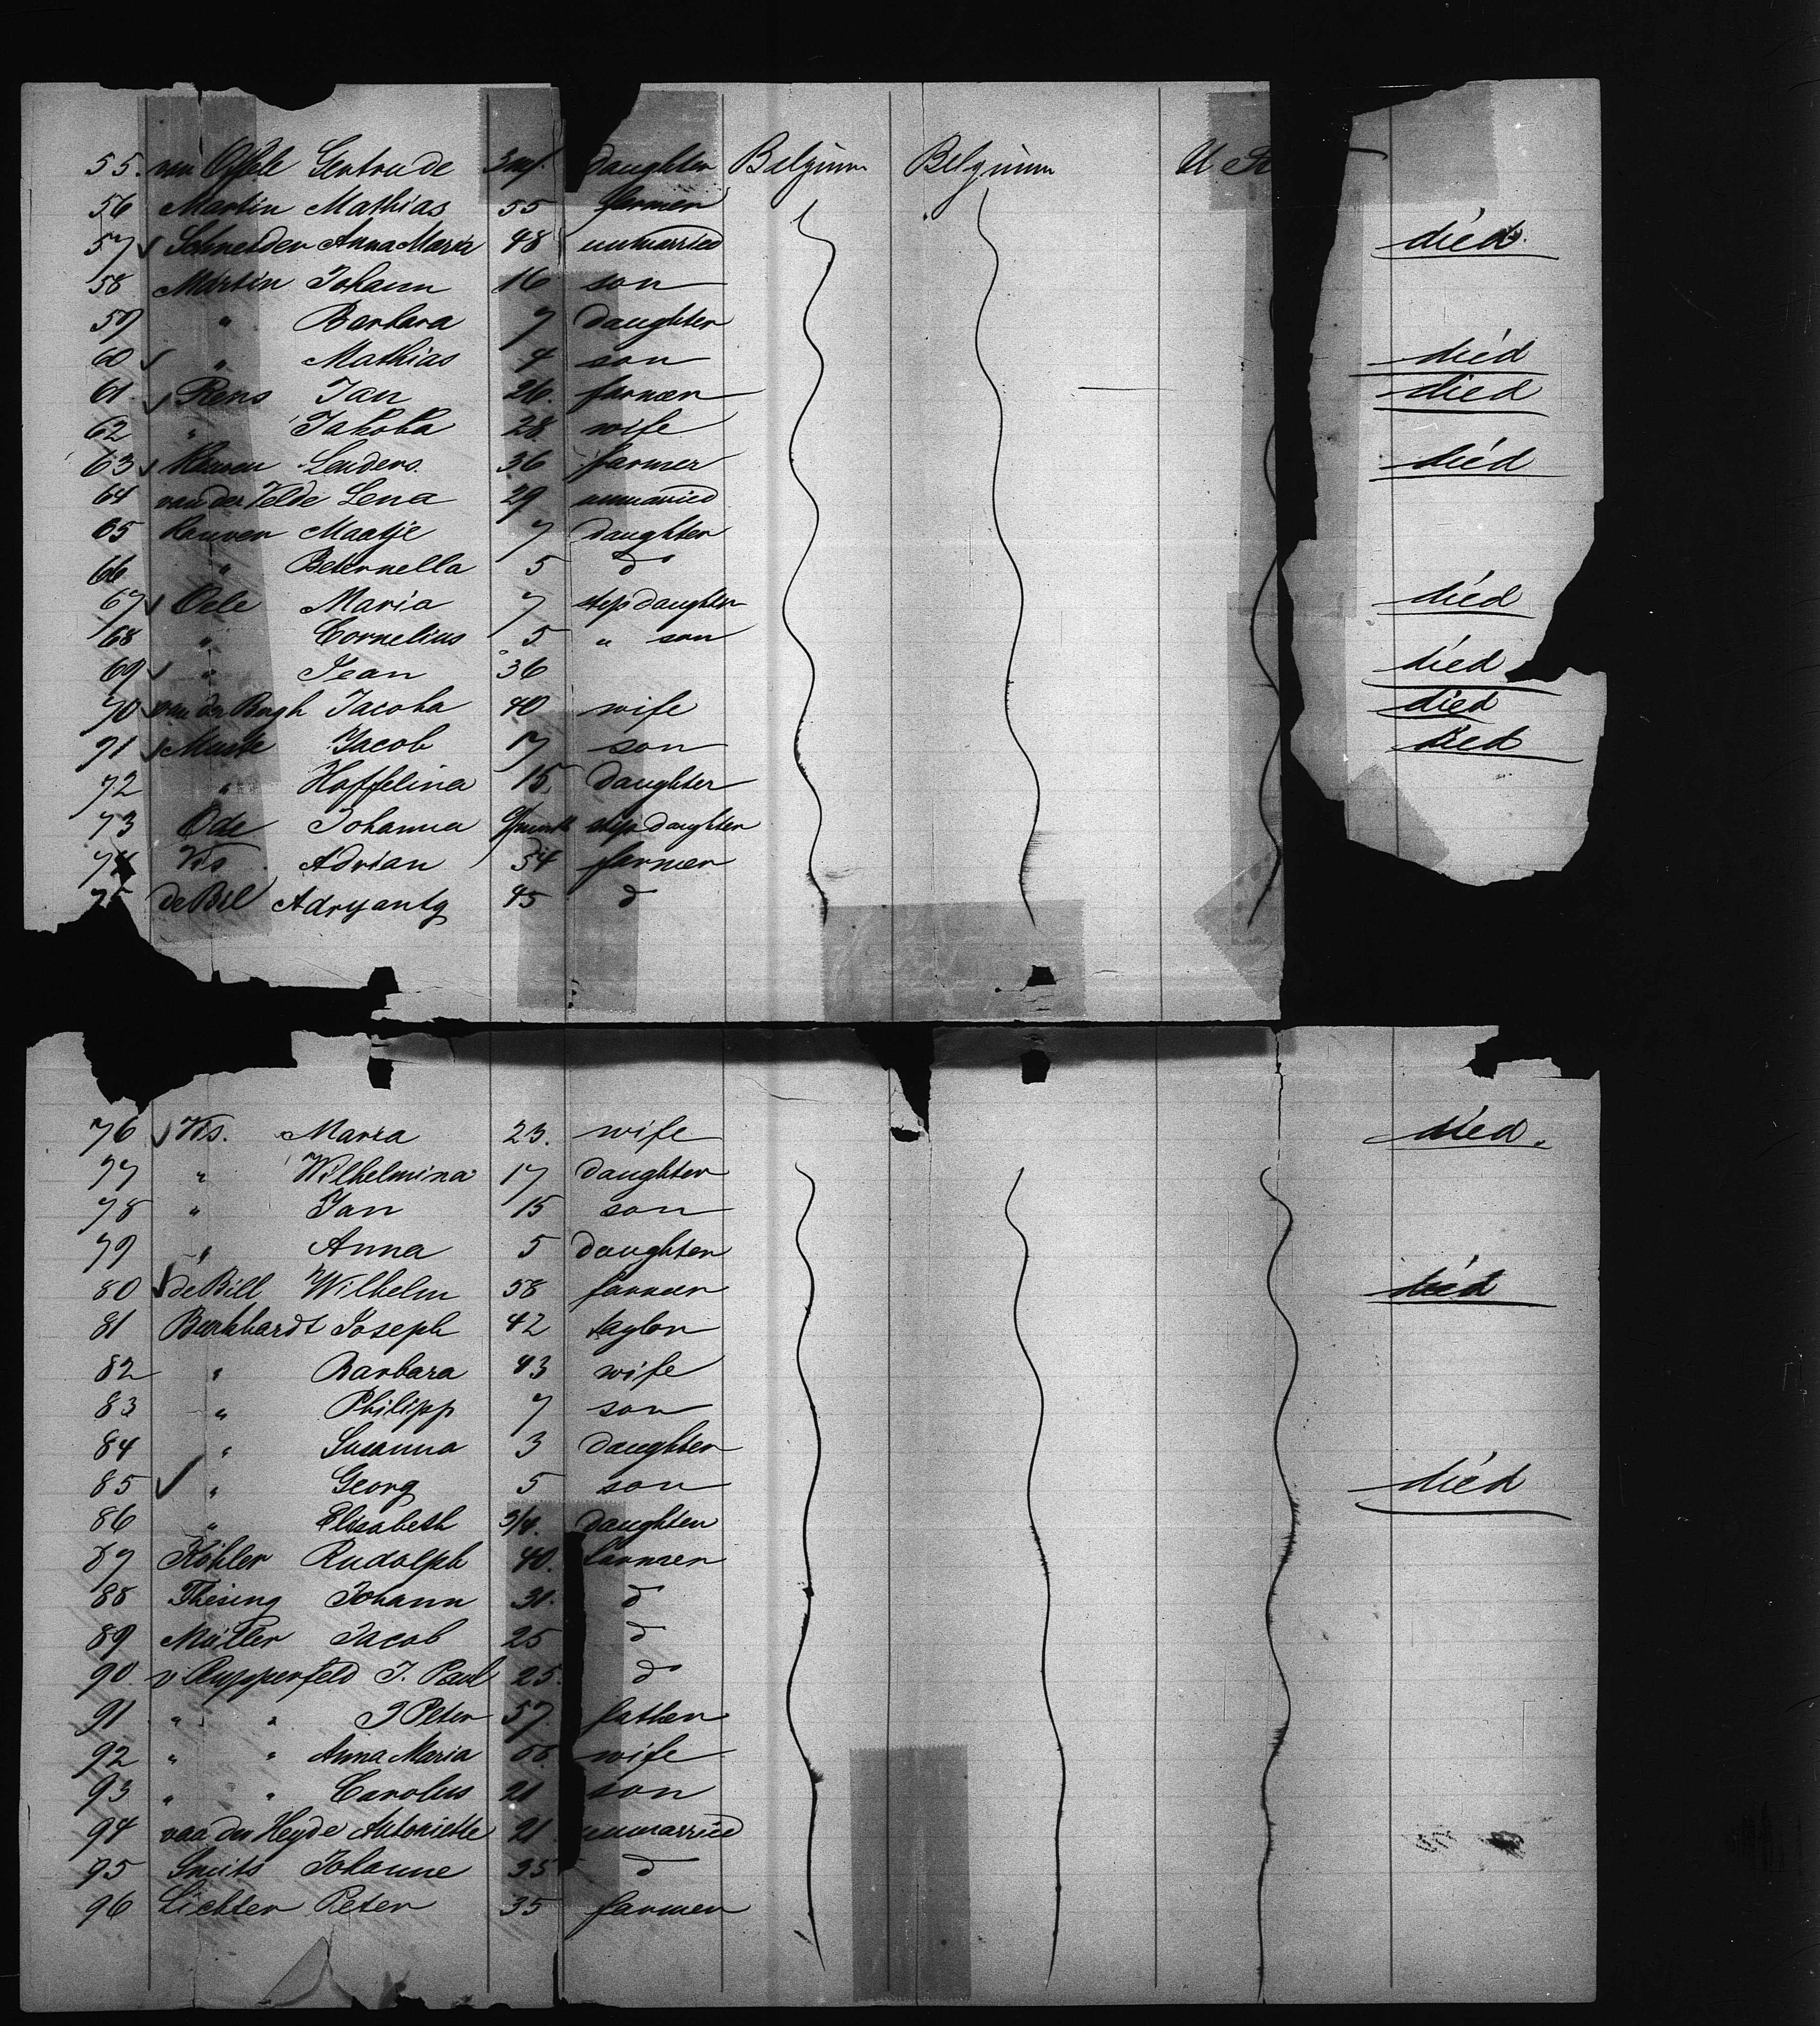 55. van Gertrude 3 daughter Belgium Belgium U St
56 Martin Mathias 55 farmer
57 ✓ Schneider Anna Maria 48 unmarried died.
58 Martin Johann 16 son
59 " Barbara 7 daughter
60 ✓ " Mathias 4 son died
61. ✓ Rens Jan 26. farmer died
62 " Jakoba 28. wife
63 ✓ Lenders. 36 farmer died
64 van der Velde Lena 29 unmarried
65 Hauven Maatje 7 daughter
66 " Peternella 5 do
67 ✓ Oele Maria 7 step daughter died
68 " Cornelius 5 " son
69 ✓ " Jean 36 died
70 ✓ van der Bergh Jacoba 40 wife died
71 ✓ Jacob 17 son died
72 " Hoffelina 15 daughter
73 Ode Johanna step daughter
74 Vis Adrian 54 farmer
75 de Bil Adryantg 45 d
76 ✓ Vis. Maria 23. wife died.
77 " Wilhelmina 17 daughter
78 " Jan 15 son
79 " Anna 5 daughter
80 ✓ de Bill Wilhelm 58 farmer died
81 Burkhardt Joseph 42 taylor
82 " Barbara 43 wife
83 " Philipp 7 son
84 " Susanna 3 daughter
85 ✓ " Georg 5 son died
86 " Elisabeth 3/4. daughter
87 Köhler Rudolph 40. farmer
88 Thesing Johann 31. d
89 Müller Jacob 25 d
90. v Rupperfeld J. Paul 25. d
91 " " J Peter 57. father
92 " " Anna Maria wife
93 " " Carolus 21 son
94 van der Heyde Antoniette 21 unmarried
95 Smits Johanne 35 d
96 Lichter Peter 35 farmer